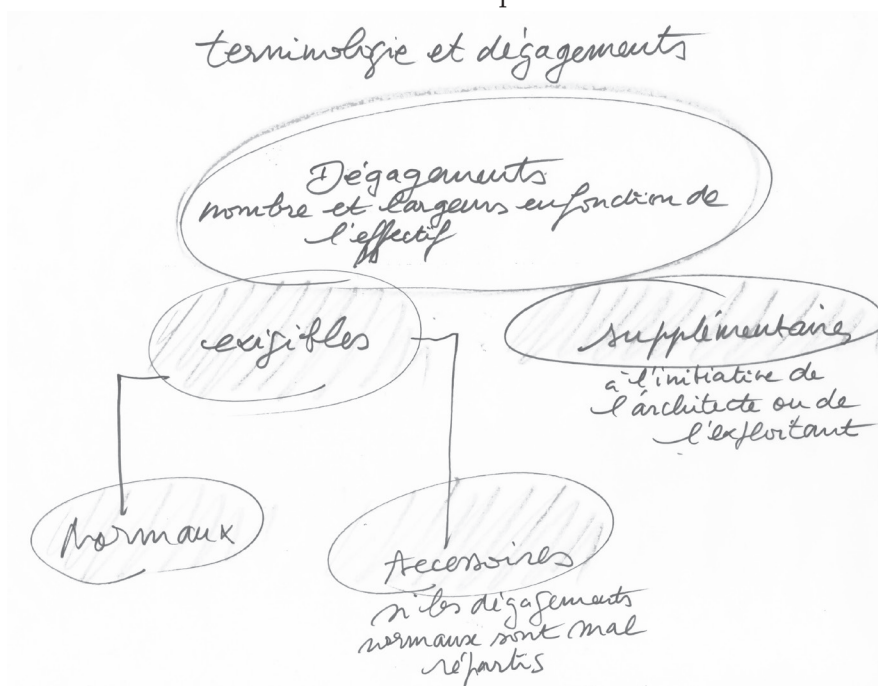 terminologie et dégagements
Dégagements
nombre et largeurs en fonction de
l'effectif
exigibles
supplémentaires
à l'initiative de
l'architecte ou de
l'exploitant
Normaux
Accessoires
si les dégagements
normaux sont mal
répartis